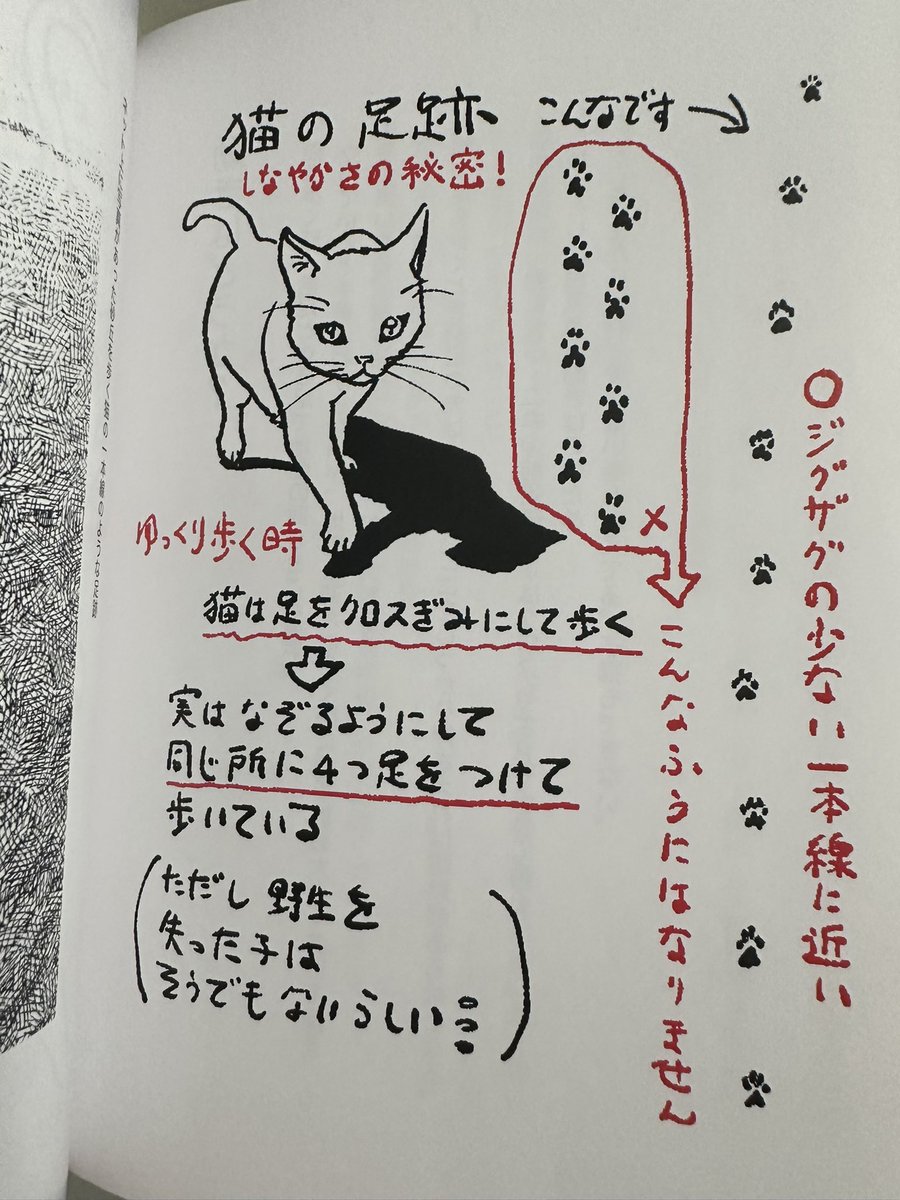 猫の足跡
こんなです→
しなやかさの秘密!
ゆっくり歩く時
猫は足をクロスぎみにして歩く
実はなぞるようにして
同じ所に4つ足をつけて
歩いている
(ただし野生を
失った子は
そうでもないらしい…)
×
こんなふうにはなりません
○ジグザグの少ない一本線に近い